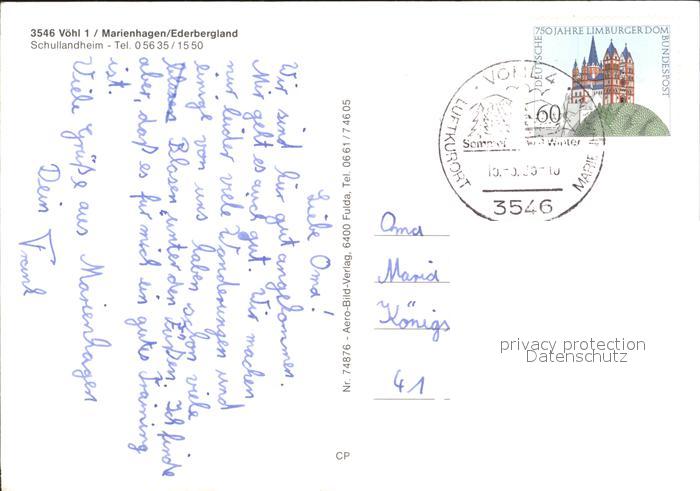 3546 Vöhl 1 / Marienhagen/Ederbergland
Schullandheim - Tel. 0 56 35 / 15 50
Liebe Oma!
Wir sind hier gut angekommen.
Mir geht es auch gut. Wir machen
nur leider viele Wanderungen und
einige von uns haben schon viele
Blasen unter den Füßen. Ich finde
aber, daß es für mich ein gutes Training
ist.
Viele Grüße aus Marienhagen
Dein Frank
Nr. 74876 - Aero-Bild-Verlag, 6400 Fulda, Tel. 0661 / 7 46 05
CP
750 JAHRE LIMBURGER DOM
DEUTSCHE BUNDESPOST
60
VÖHL
LUFTKURORT
Sommer und Winter
3546
Oma
Maria
Königs
41
privacy protection
Datenschutz